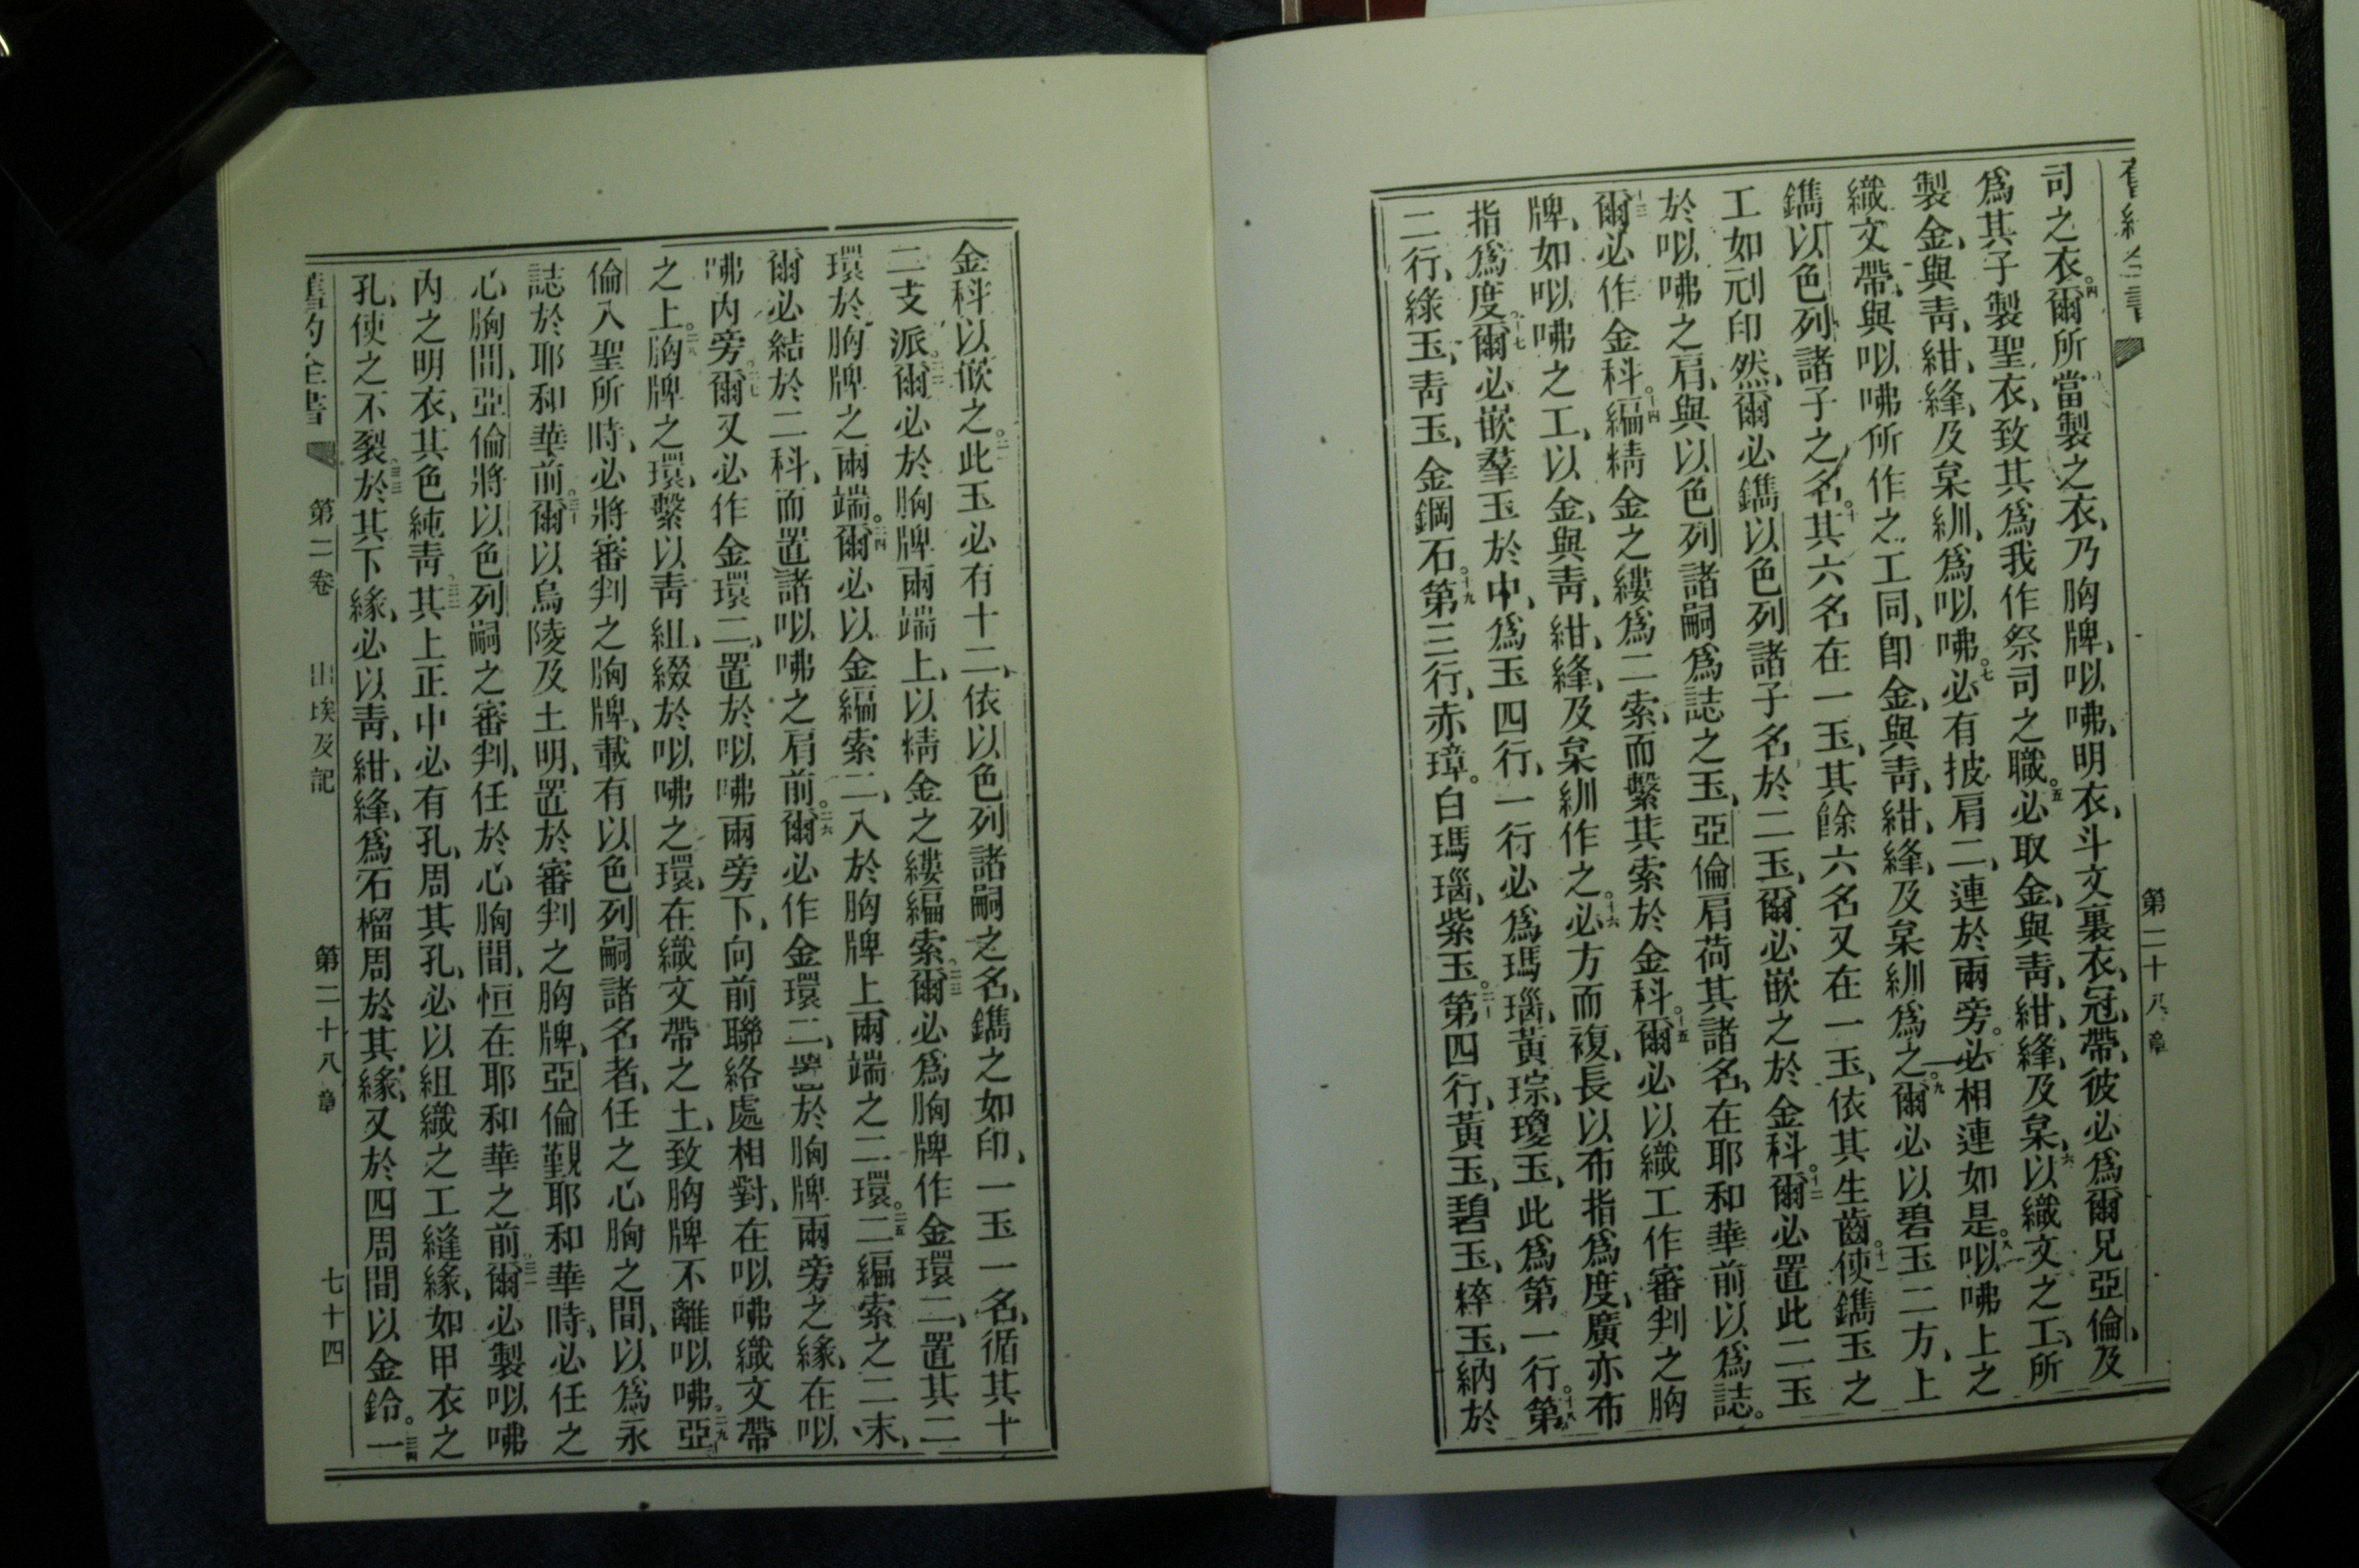 舊約全書 第二十八章
司之衣。四爾所當製之衣、乃胸牌、㕥咈、明衣、斗文裏衣、冠、帶、彼必爲爾兄亞倫、及
爲其子製聖衣、致其爲我作祭司之職。五必取金、與靑、紺、絳、及枲、六以織文之工、所
製金、與靑、紺、絳、及枲紃、爲㕥咈。七必有披肩二、連於兩旁。必相連如是。八㕥咈上之
織文帶、與㕥咈所作之工同、卽金、與靑、紺、絳、及枲紃爲之。九爾必以碧玉二方、上
鐫以色列諸子之名。十其六名在一玉、其餘六名又在一玉、依其生齒。十一使鐫玉之
工如刓印然、爾必鐫以色列諸子名於二玉、爾必嵌之於金科。十二爾必置此二玉
於㕥咈之肩、與以色列諸嗣爲誌之玉、亞倫肩荷其諸名、在耶和華前以爲誌。
十三爾必作金科。十四編精金之縷爲二索、而繫其索於金科。十五爾必以織工作審判之胸
牌、如㕥咈之工、以金、與靑、紺、絳、及枲紃作之。十六必方而複、長以布指爲度、廣亦布
指爲度。十七爾必嵌羣玉於中、爲玉四行、一行必爲瑪瑙、黃琮、瓊玉、此爲第一行。十八第
二行、綠玉、靑玉、金鋼石。十九第三行、赤璋。白瑪瑙、紫玉。二十第四行、黃玉、碧玉、粹玉、納於
金科以嵌之。二一此玉必有十二、依以色列諸嗣之名、鐫之如印、一玉一名、循其十
二支派。二二爾必於胸牌兩端上、以精金之縷編索。二三爾必爲胸牌作金環二、置其二
環於胸牌之兩端。二四爾必以金編索二、入於胸牌上、兩端之二環。二五二編索之二末、
爾必結於二科、而置諸㕥咈之肩前。二六爾必作金環二、置於胸牌兩旁之緣、在㕥
咈內旁。二七爾又必作金環二、置於㕥咈兩旁下、向前聯絡處相對、在㕥咈織文帶
之上。二八胸牌之環、繫以靑組、綴於㕥咈之環、在織文帶之上、致胸牌不離㕥咈。二九亞
倫入聖所時、必將審判之胸牌、載有以色列嗣諸名者、任之心胸之間、以爲永
誌於耶和華前。三十爾以烏陵及土明、置於審判之胸牌、亞倫覲耶和華時、必任之
心胸間、亞倫將以色列嗣之審判、任於心胸間、恒在耶和華之前。三一爾必製㕥咈
內之明衣、其色純靑。三二其上正中必有孔、周其孔、必以組織之工縫緣、如甲衣之
孔、使之不裂。三三於其下緣、必以靑、紺、絳、爲石榴周於其緣、又於四周間以金鈴。三四一
舊約全書 第二卷 出埃及記 第二十八章 七十四